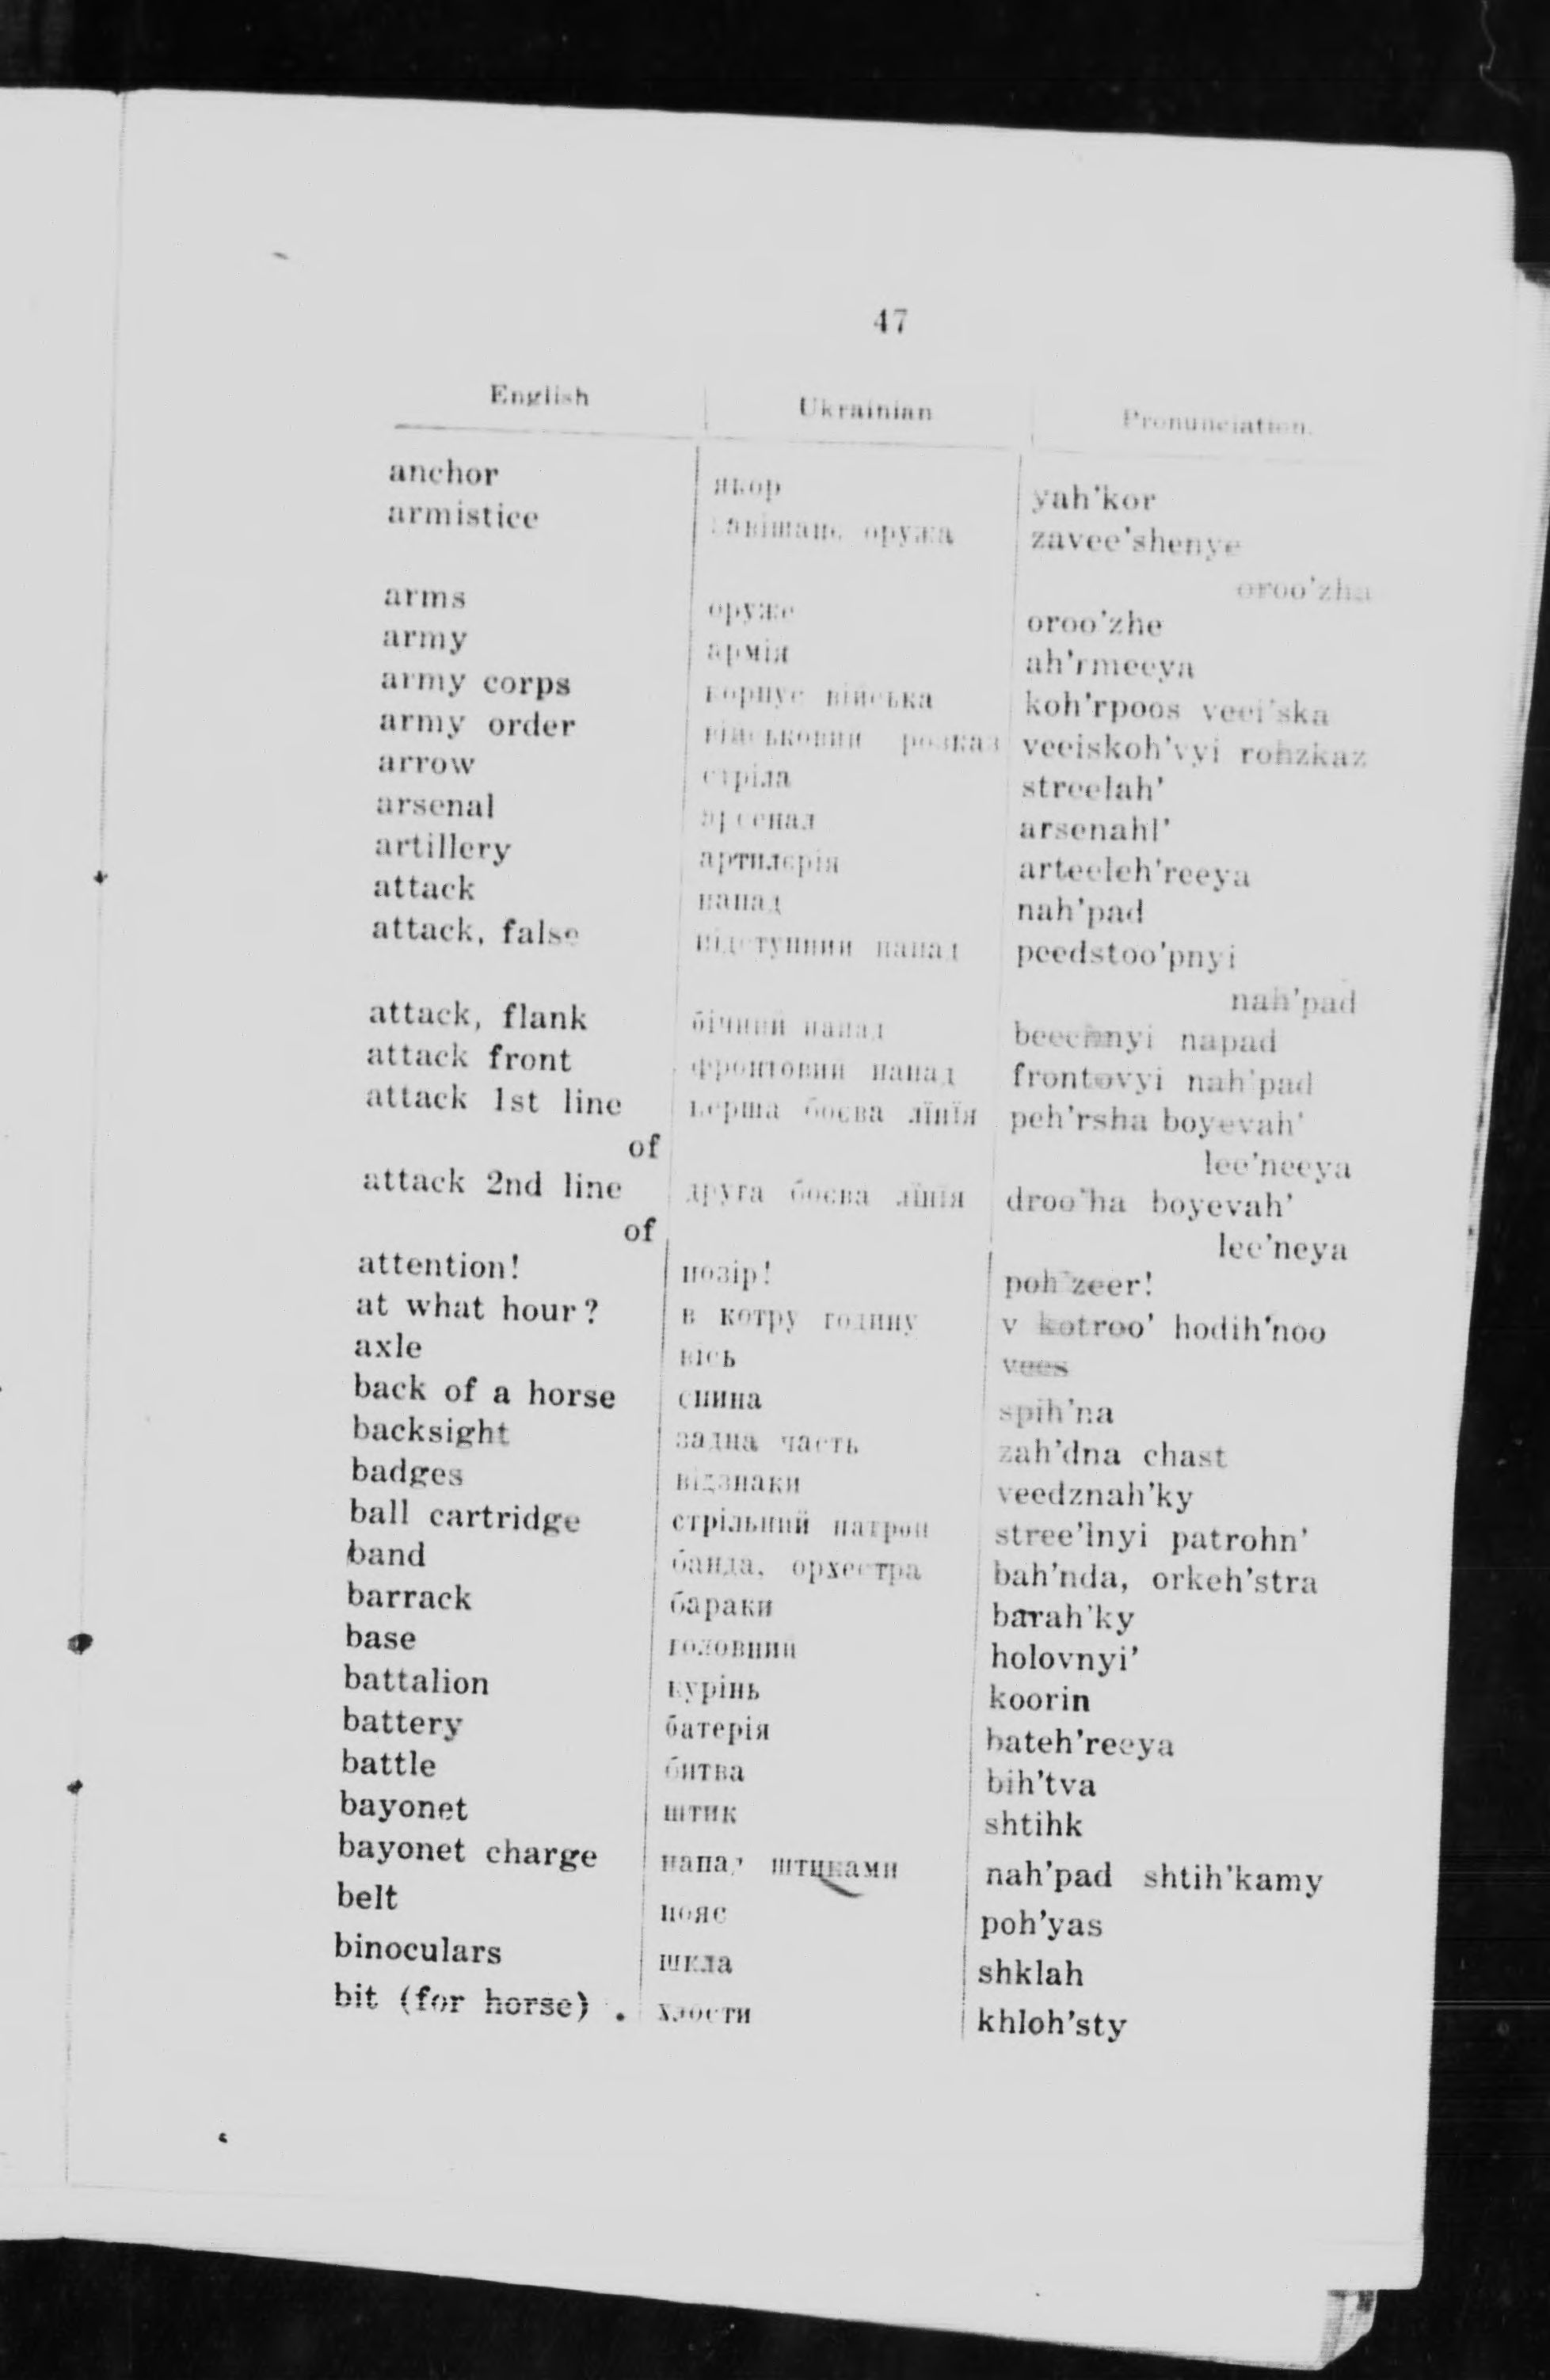 47
English Ukrainian Pronunciation.
anchor якор yah'kor
armistice оружа zavee'shenye
oroo'zha
arms оруже oroo'zhe
army армія ah'rmeeya
army corps корпус війська koh'rpoos veei'ska
army order військовий розказ veeiskoh'vyi rohzkaz
arrow стріла streelah'
arsenal арсенал arsenahl'
artillery артилєрія arteeleh'reeya
attack напад nah'pad
attack, false підступний напад peedstoo'pnyi
nah'pad
attack, flank бічний напад napad
attack front фронтовий напад frontovyi nah'pad
attack 1st line перша боєва лїнїя peh'rsha boyevah'
of lee'neeya
attack 2nd line друга боєва лїнїя droo'ha boyevah'
of lee'neya
attention! позір! poh'zeer!
at what hour? в котру годину v kotroo' hodih'noo
axle вісь vees
back of a horse спина spih'na
backsight задна часть zah'dna chast
badges відзнаки veedznah'ky
ball cartridge стрільний патрон stree'lnyi patrohn'
band банда, орхестра bah'nda, orkeh'stra
barrack бараки barah'ky
base головний holovnyi'
battalion курінь koorin
battery батерія bateh'reeya
battle битва bih'tva
bayonet штик shtihk
bayonet charge напад штиками nah'pad shtih'kamy
belt пояс poh'yas
binoculars шкла shklah
bit (for horse) . хлости khloh'sty